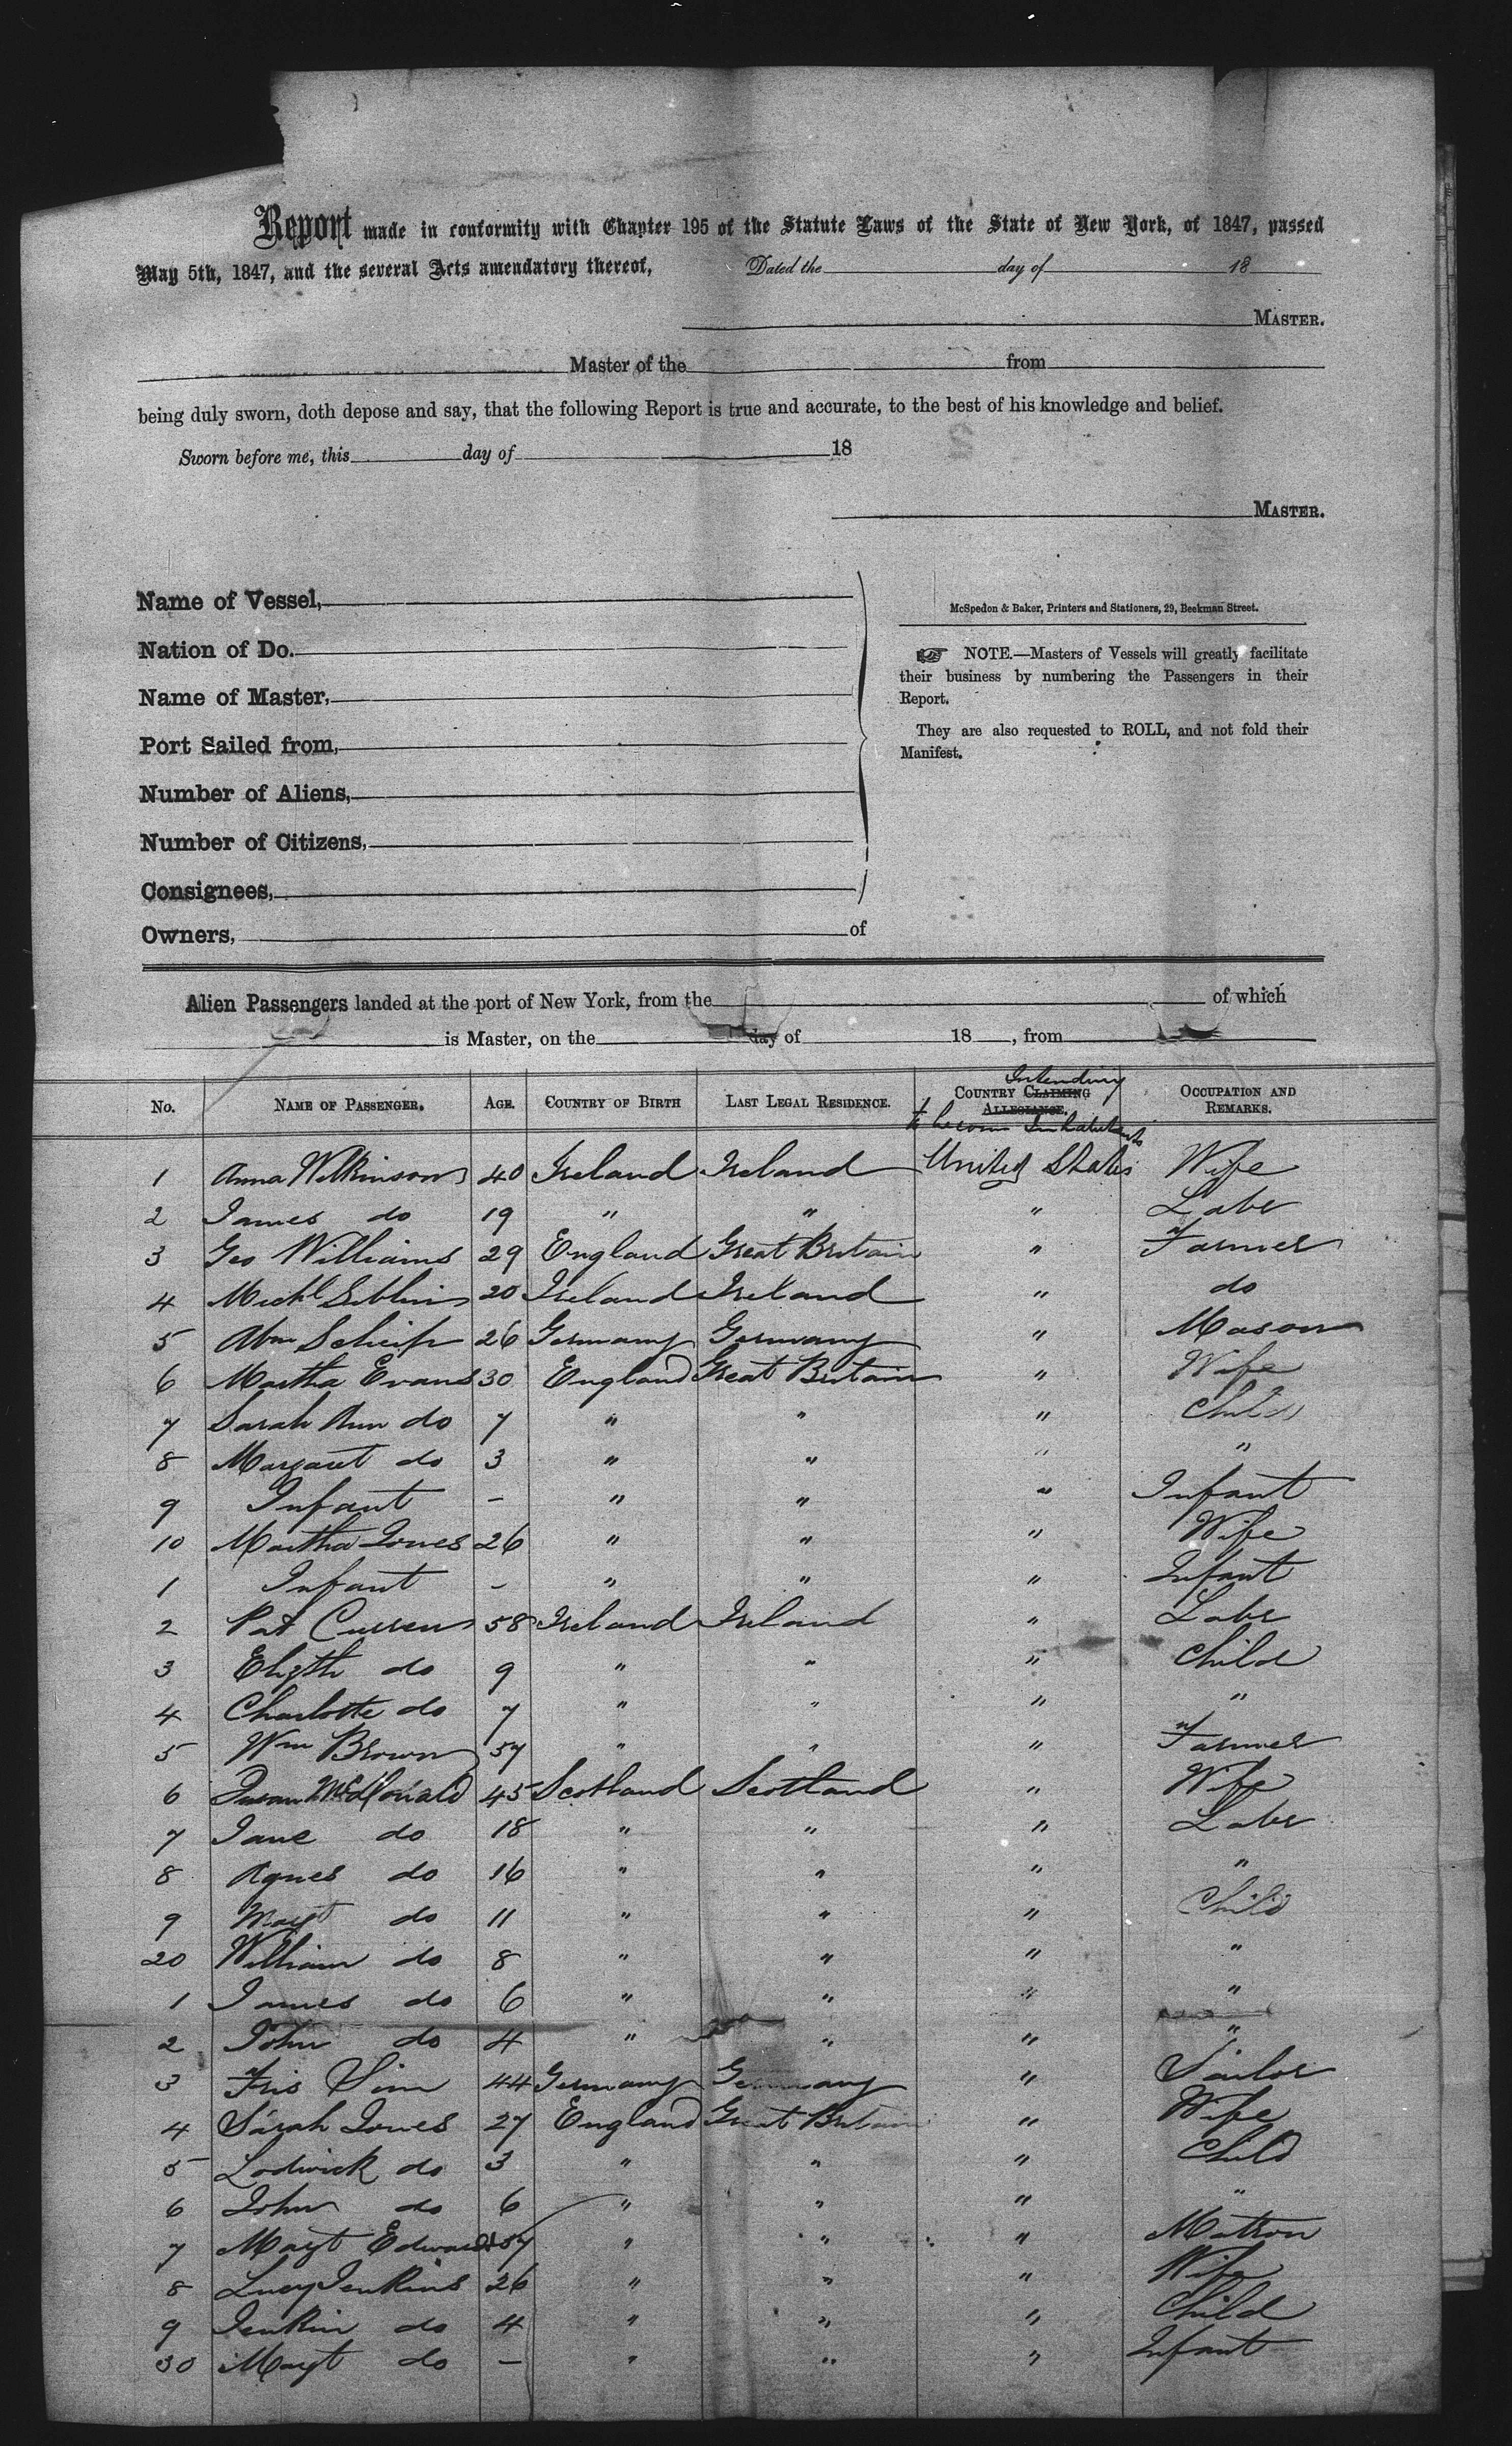 Report made in conformity with Chapter 195 of the Statute Laws of the State of New York, of 1847, passed
May 5th, 1847, and the several Acts amendatory thereof, Dated the day of 18
MASTER.
Master of the from
being duly sworn, doth depose and say, that the following Report is true and accurate, to the best of his knowledge and belief.
Sworn before me, this day of 18
MASTER.
Name of Vessel,
Nation of Do.
Name of Master,
Port Sailed from,
Number of Aliens,
Number of Citizens,
Consignees,
Owners, of
McSpedon & Baker, Printers and Stationers, 29, Beekman Street.
☞ NOTE.—Masters of Vessels will greatly facilitate
their business by numbering the Passengers in their
Report.
They are also requested to ROLL, and not fold their
Manifest.
Alien Passengers landed at the port of New York, from the of which
is Master, on the day of 18 , from
No. NAME OF PASSENGER. AGE. COUNTRY OF BIRTH LAST LEGAL RESIDENCE. COUNTRY CLAIMING ALLEGIANCE. Intending to become Inhabitants OCCUPATION AND REMARKS.
1 Anna Wilkinson 40 Ireland Ireland United States Wife
2 James do 19 " " " Labr
3 Geo Williams 29 England Great Britain " Farmer
4 Michl 20 Ireland Ireland " do
5 Abm 26 Germany Germany " Mason
6 Martha Evans 30 England Great Britain " Wife
7 Sarah Ann do 7 " " " Child
8 Margaret do 3 " " " "
9 Infant - " " " Infant
10 Martha Jones 26 " " " Wife
1 Infant - " " " Infant
2 Pat Curren 58 Ireland Ireland " Labr
3 Elizth do 9 " " " Child
4 Charlotte do 7 " " " "
5 Wm Brown 57 " " " Farmer
6 Susan McDonald 45 Scotland Scotland " Wife
7 Jane do 18 " " " Labr
8 Agnes do 16 " " " "
9 Margt do 11 " " " Child
20 William do 8 " " " "
1 James do 6 " " " "
2 John do 4 " " " "
3 Fris Sim 44 Germany Germany " Sailor
4 Sarah Jones 27 England Great Britain " Wife
5 Lodwick do 3 " " " Child
6 John do 6 " " " "
7 Margt Edwards 57 " " " Matron
8 Lucy Jenkins 26 " " " Wife
9 Jenkin do 4 " " " Child
30 Margt do - " " " Infant